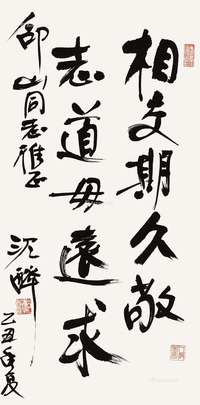 相交期久敬
志道毋远求
邵山同志雅正
沈醉
乙丑年夏